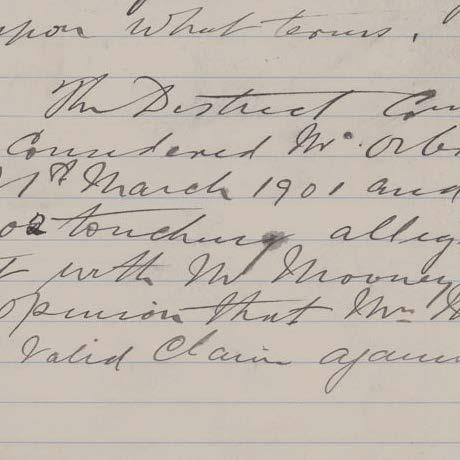 upon what terms.
The District Com
considered Mr. Orb
21st March 1901 and
02 touching alleg
t with Mr Mooney
opinion that Mrs
valid claim again